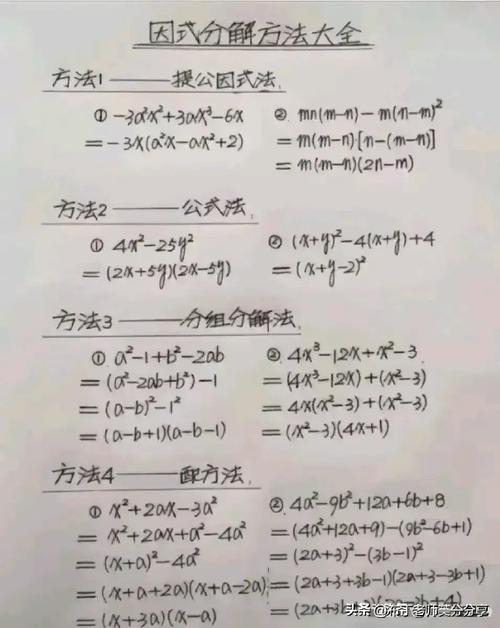 因式分解方法大全
方法1——提公因式法.
① -3a²x²+3ax³-6x
= -3x(a²x-ax²+2)
② mn(m-n)-m(n-m)²
= m(m-n)·[n-(m-n)]
= m(m-n)(2n-m)
方法2——公式法.
① 4x²-25y²
= (2x+5y)(2x-5y)
② (x+y)²-4(x+y)+4
= (x+y-2)²
方法3——分组分解法.
① a²-1+b²-2ab
= (a²-2ab+b²)-1
= (a-b)²-1²
= (a-b+1)(a-b-1)
② 4x³-12x+x²-3.
= (4x³-12x)+(x²-3)
= 4x(x²-3)+(x²-3)
= (x²-3)(4x+1)
方法4——配方法.
① x²+2ax-3a²
= x²+2ax+a²-4a²
= (x+a)²-4a²
= (x+a+2a)(x+a-2a)
= (x+3a)(x-a)
② 4a²-9b²+12a+6b+8
= (4a²+12a+9)-(9b²-6b+1)
= (2a+3)²-(3b-1)²
= (2a+3+3b-1)(2a+3-3b+1)
= (2a+3b
头条